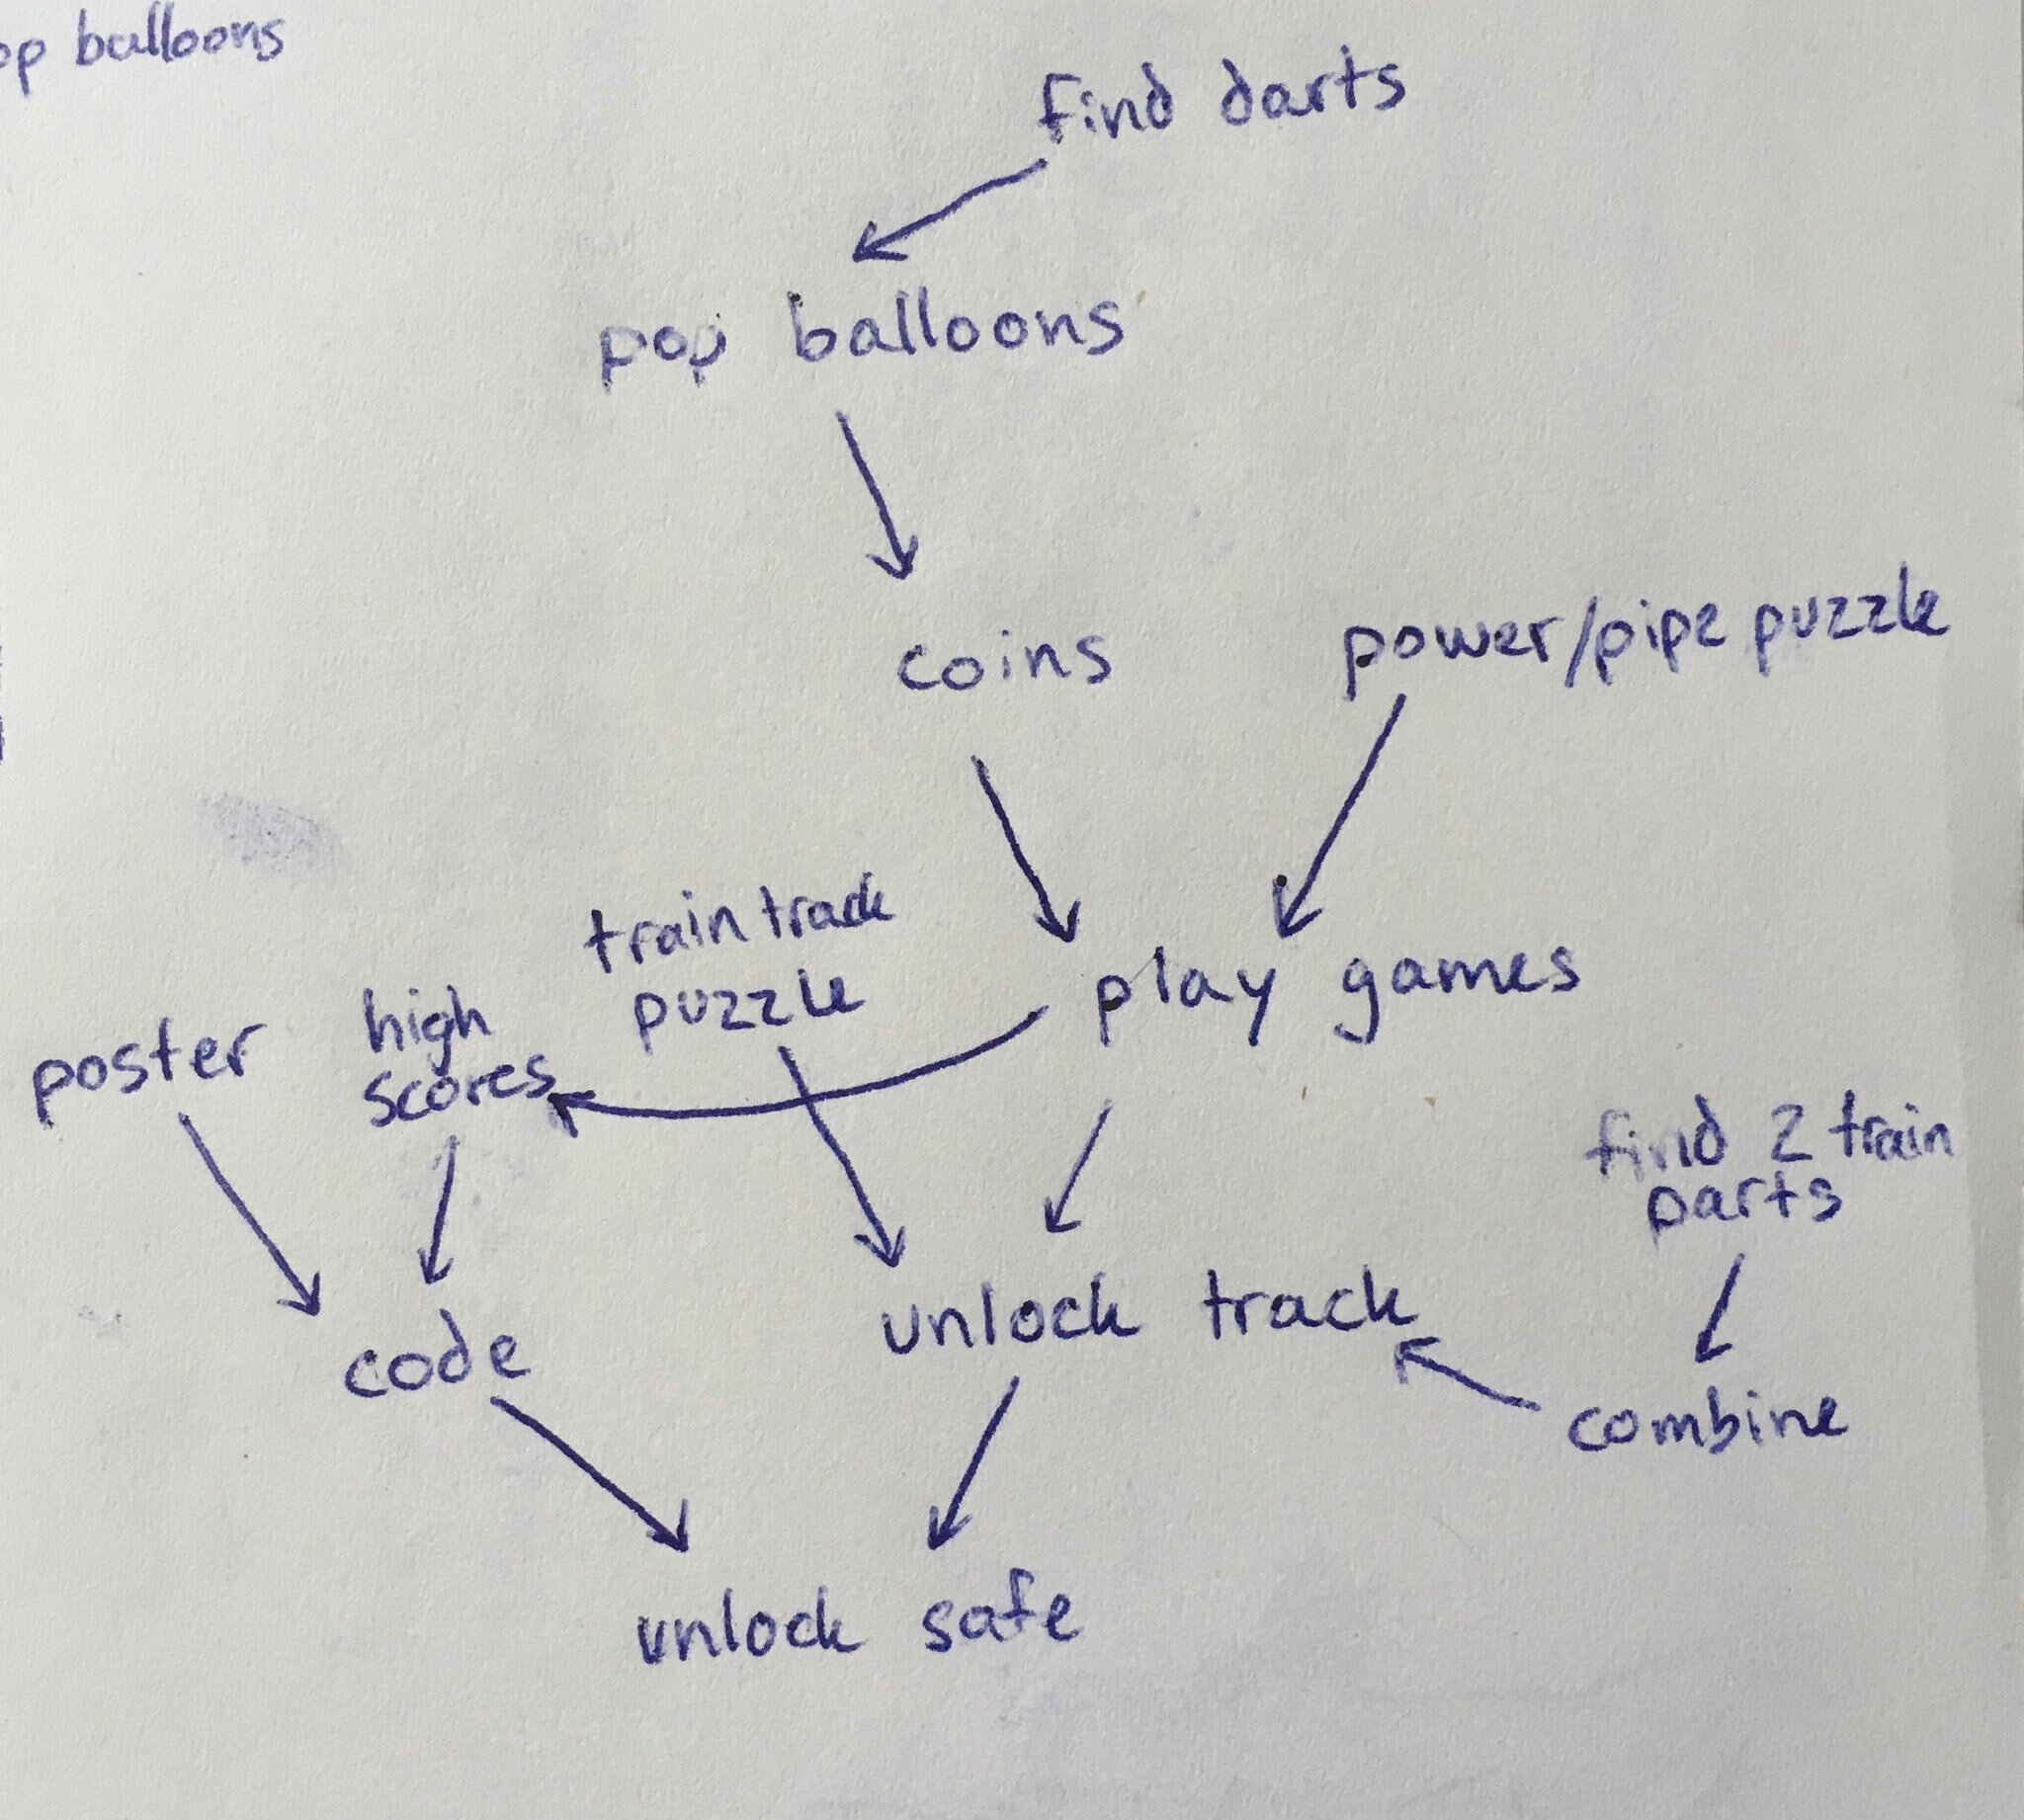 balloons
find darts
pop balloons
coins
power/pipe puzzle
train track
puzzle
play games
high
scores
poster
find 2 train
parts
unlock track
code
combine
unlock safe